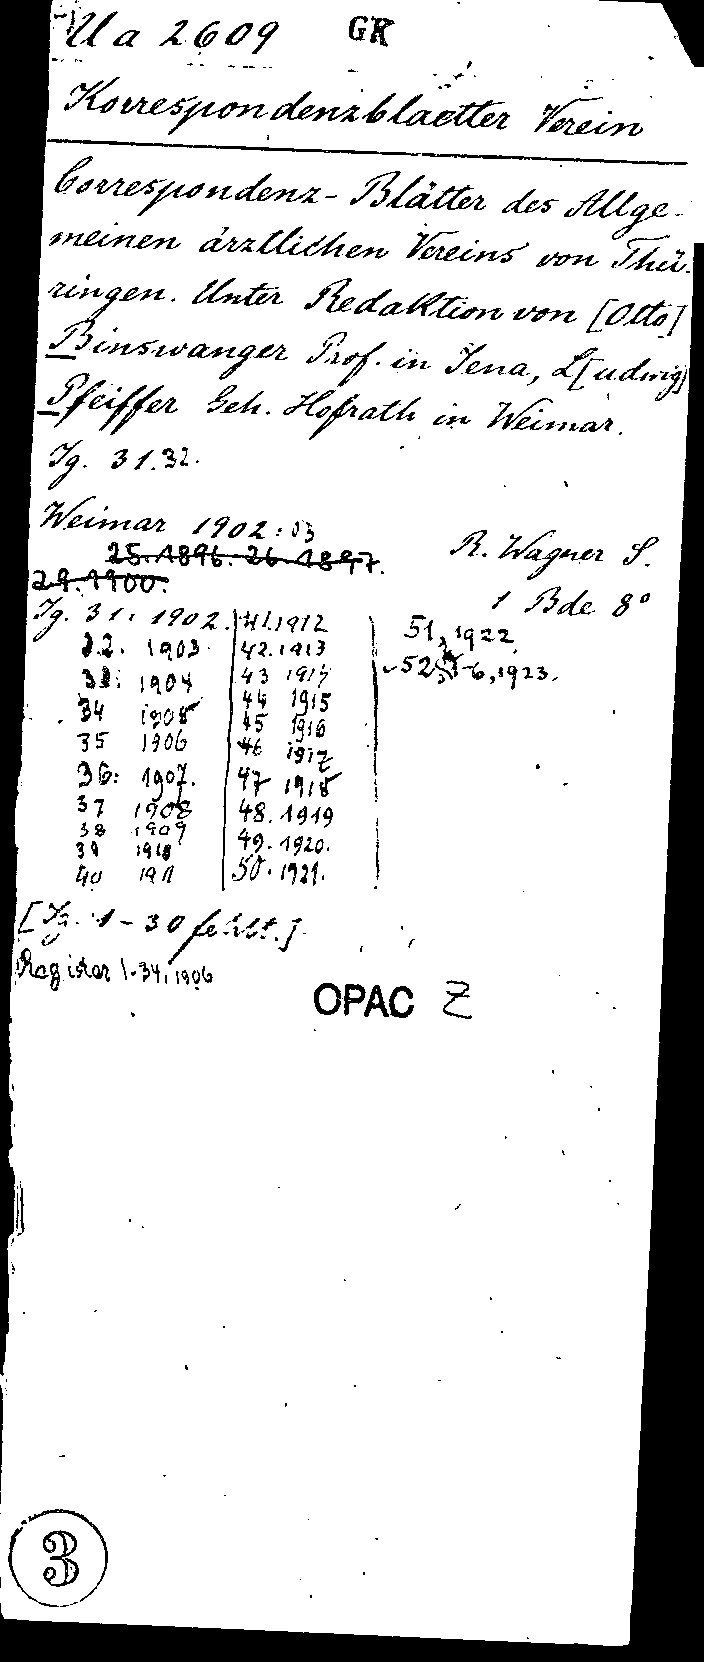 Ua 2609 GR
Korrespondenzblaetter Verein
Correspondenz-Blätter des Allge-
meinen ärztlichen Vereins von Thü-
ringen. Unter Redaktion von [Otto]
Binswanger Prof. in Jena, L[udwig]
Pfeiffer Geh. Hofrath in Weimar.
Jg. 31.32.
Weimar 1902:03
25.1896. 26.1897.
29.1900.
R. Wagner S.
1 Bde 8°
Jg. 31. 1902.
32. 1903
33. 1904
34 1905
35 1906
36: 1907.
37 1908
38 1909
39 1910
40 1911
41.1912
42.1913
43 1914
44 1915
45 1916
46 1917
47 1918
48.1919
49.1920.
50.1921.
51, 1922
52, -6, 1923.
[Jg. 1-30 fehlt.]
Register 1-34, 1906
OPAC Z
3